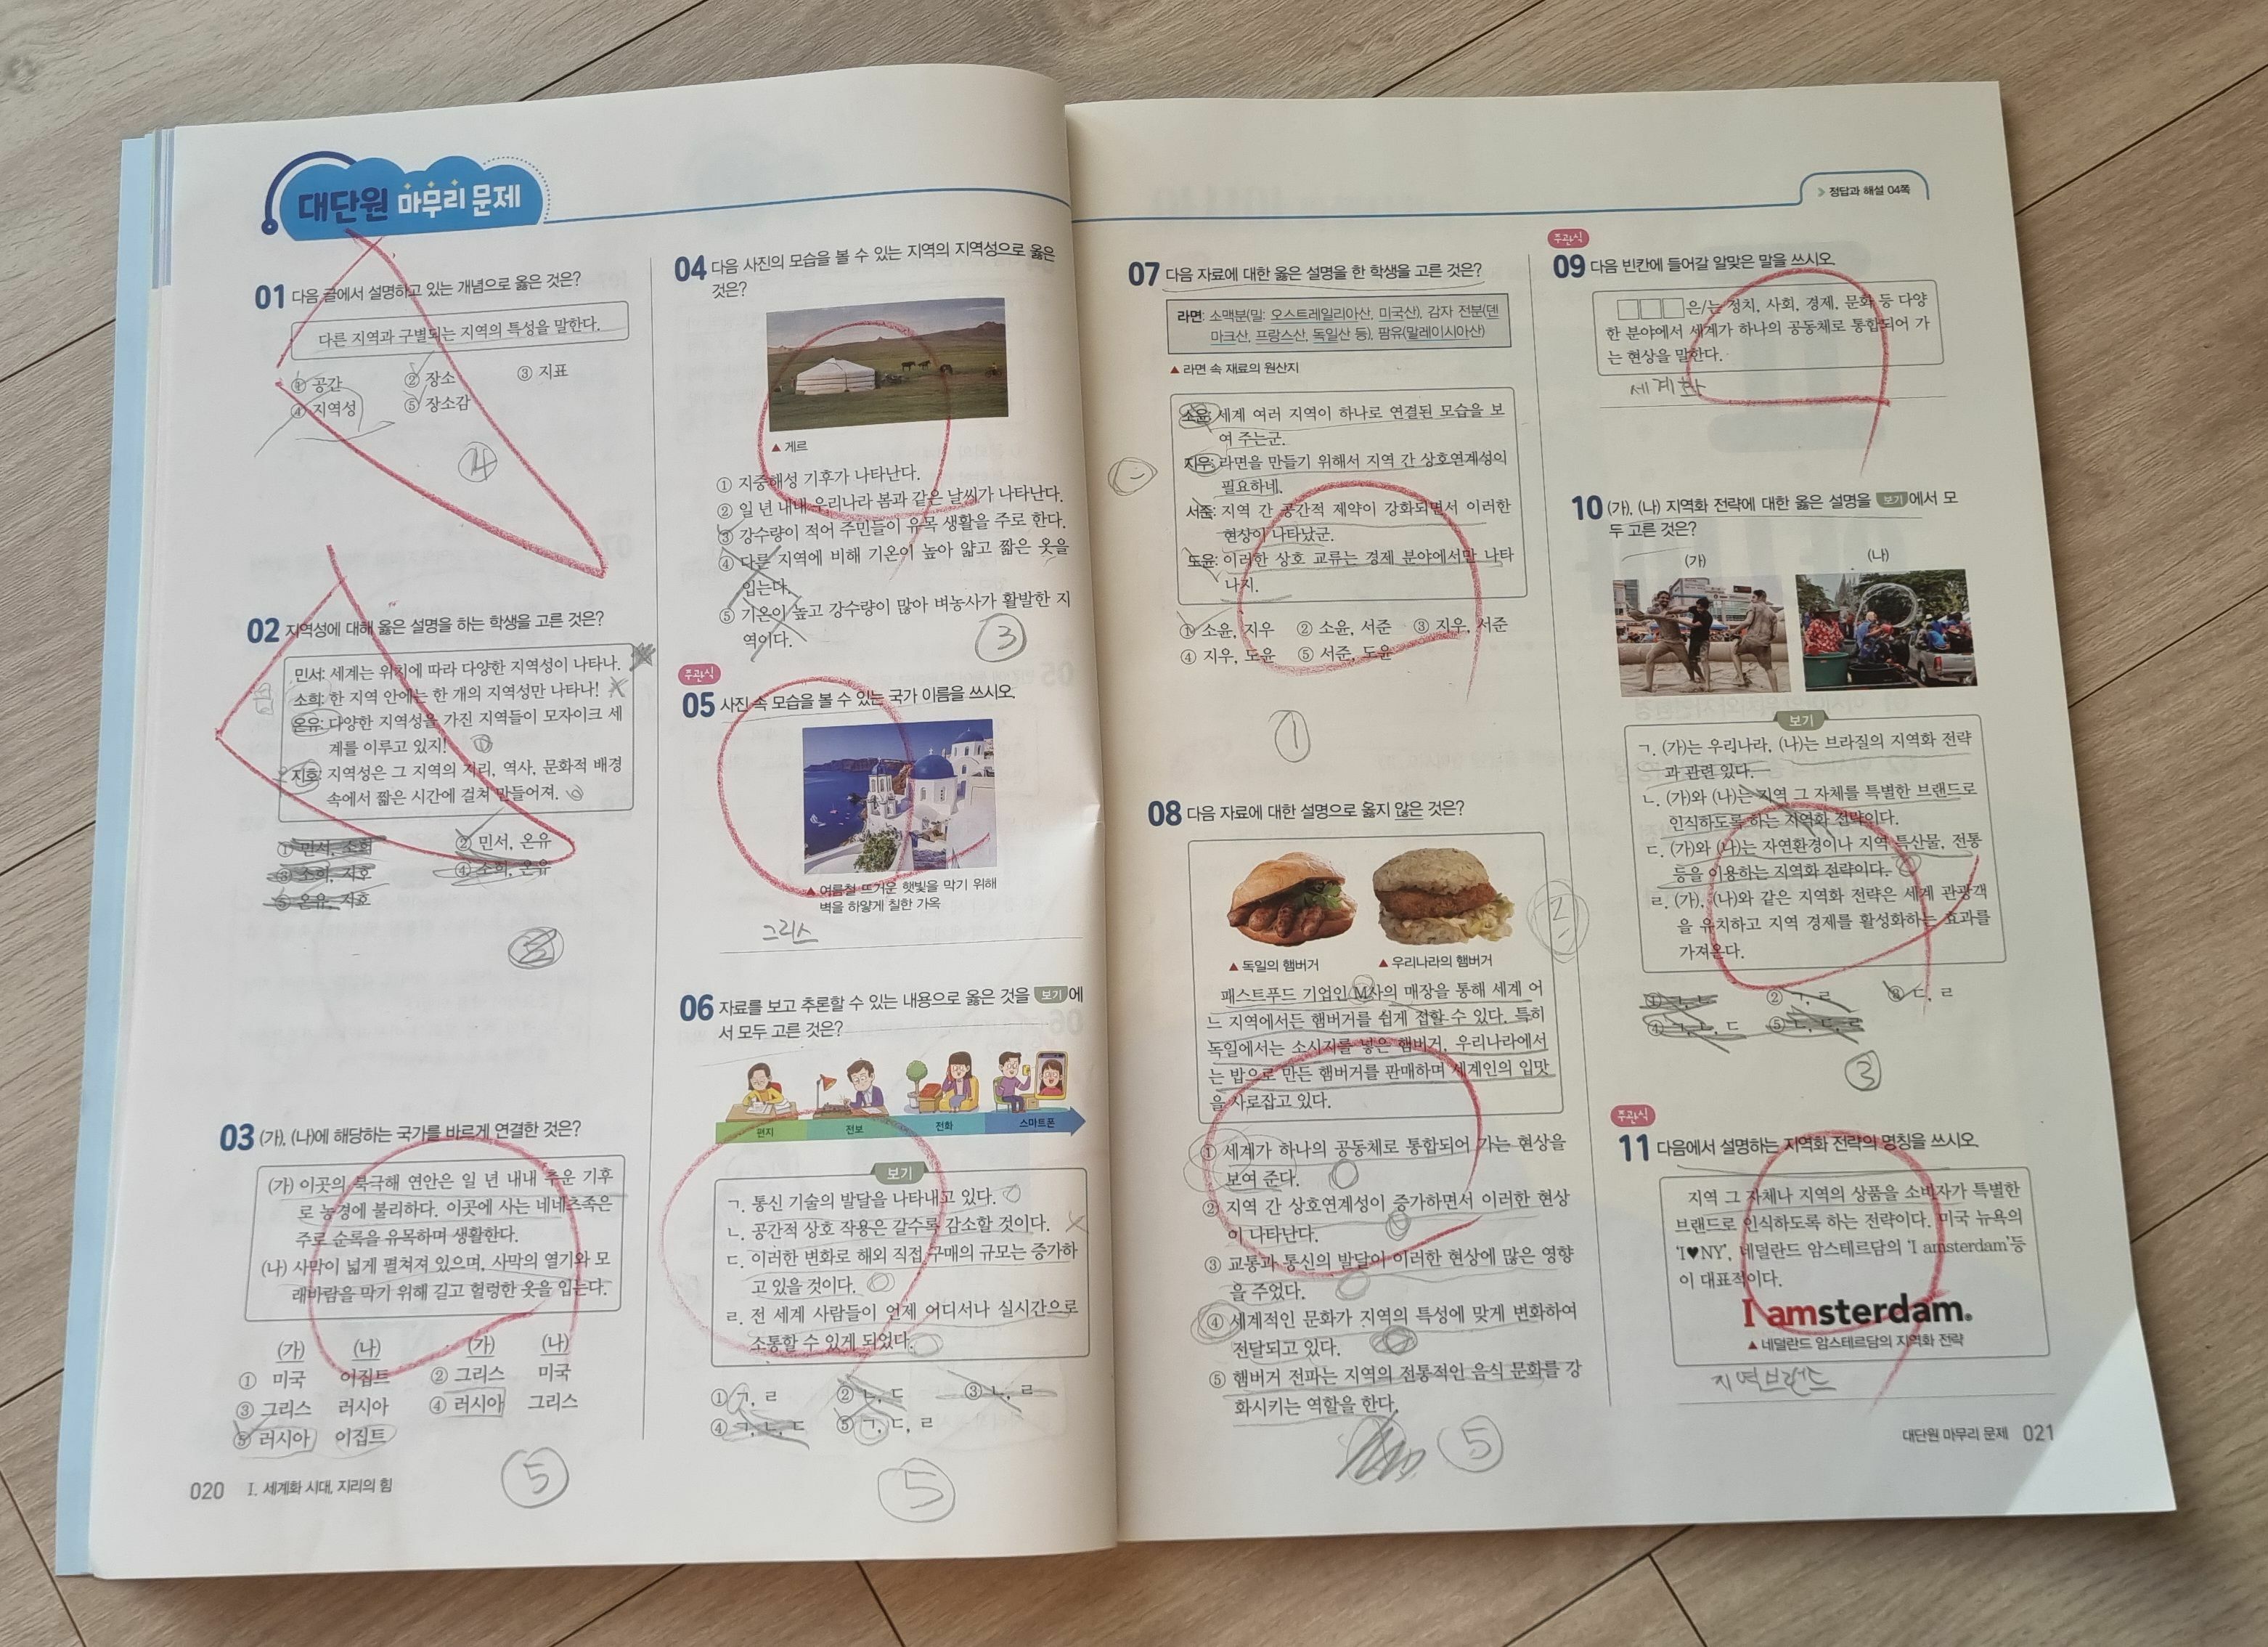 대단원 마무리 문제
01 다음 글에서 설명하고 있는 개념으로 옳은 것은?
다른 지역과 구별되는 지역의 특성을 말한다.
① 공간 ② 장소 ③ 지표
④ 지역성 ⑤ 장소감
④
02 지역성에 대해 옳은 설명을 하는 학생을 고른 것은?
민서: 세계는 위치에 따라 다양한 지역성이 나타나.
소희: 한 지역 안에는 한 개의 지역성만 나타나!
온유: 다양한 지역성을 가진 지역들이 모자이크 세
계를 이루고 있지!
지호: 지역성은 그 지역의 지리, 역사, 문화적 배경
속에서 짧은 시간에 걸쳐 만들어져.
① 민서, 소희 ② 민서, 온유
③ 소희, 지호 ④ 소희, 온유
⑤ 온유, 지호
03 (가), (나)에 해당하는 국가를 바르게 연결한 것은?
(가) 이곳의 북극해 연안은 일 년 내내 추운 기후
로 농경에 불리하다. 이곳에 사는 네네츠족은
주로 순록을 유목하며 생활한다.
(나) 사막이 넓게 펼쳐져 있으며, 사막의 열기와 모
래바람을 막기 위해 길고 헐렁한 옷을 입는다.
(가) (나) (가) (나)
① 미국 이집트 ② 그리스 미국
③ 그리스 러시아 ④ 러시아 그리스
⑤ 러시아 이집트
⑤
020 Ⅰ. 세계화 시대, 지리의 힘
04 다음 사진의 모습을 볼 수 있는 지역의 지역성으로 옳은
것은?
▲ 게르
① 지중해성 기후가 나타난다.
② 일 년 내내 우리나라 봄과 같은 날씨가 나타난다.
③ 강수량이 적어 주민들이 유목 생활을 주로 한다.
④ 다른 지역에 비해 기온이 높아 얇고 짧은 옷을
입는다.
⑤ 기온이 높고 강수량이 많아 벼농사가 활발한 지
역이다.
③
주관식
05 사진 속 모습을 볼 수 있는 국가 이름을 쓰시오.
▲ 여름철 뜨거운 햇빛을 막기 위해
벽을 하얗게 칠한 가옥
그리스
06 자료를 보고 추론할 수 있는 내용으로 옳은 것을 보기에
서 모두 고른 것은?
편지 전보 전화 스마트폰
보기
ㄱ. 통신 기술의 발달을 나타내고 있다.
ㄴ. 공간적 상호 작용은 갈수록 감소할 것이다.
ㄷ. 이러한 변화로 해외 직접 구매의 규모는 증가하
고 있을 것이다.
ㄹ. 전 세계 사람들이 언제 어디서나 실시간으로
소통할 수 있게 되었다.
① ㄱ, ㄹ ② ㄴ, ㄷ ③ ㄴ, ㄹ
④ ㄱ, ㄴ, ㄷ ⑤ ㄱ, ㄷ, ㄹ
⑤
정답과 해설 04쪽
07 다음 자료에 대한 옳은 설명을 한 학생을 고른 것은?
라면: 소맥분(밀: 오스트레일리아산, 미국산), 감자 전분(덴
마크산, 프랑스산, 독일산 등), 팜유(말레이시아산)
▲ 라면 속 재료의 원산지
소윤: 세계 여러 지역이 하나로 연결된 모습을 보
여 주는군.
지우: 라면을 만들기 위해서 지역 간 상호연계성이
필요하네.
서준: 지역 간 공간적 제약이 강화되면서 이러한
현상이 나타났군.
도윤: 이러한 상호 교류는 경제 분야에서만 나타
나지.
① 소윤, 지우 ② 소윤, 서준 ③ 지우, 서준
④ 지우, 도윤 ⑤ 서준, 도윤
①
08 다음 자료에 대한 설명으로 옳지 않은 것은?
▲ 독일의 햄버거 ▲ 우리나라의 햄버거
패스트푸드 기업인 M사의 매장을 통해 세계 어
느 지역에서든 햄버거를 쉽게 접할 수 있다. 특히
독일에서는 소시지를 넣은 햄버거, 우리나라에서
는 밥으로 만든 햄버거를 판매하며 세계인의 입맛
을 사로잡고 있다.
① 세계가 하나의 공동체로 통합되어 가는 현상을
보여 준다.
② 지역 간 상호연계성이 증가하면서 이러한 현상
이 나타난다.
③ 교통과 통신의 발달이 이러한 현상에 많은 영향
을 주었다.
④ 세계적인 문화가 지역의 특성에 맞게 변화하여
전달되고 있다.
⑤ 햄버거 전파는 지역의 전통적인 음식 문화를 강
화시키는 역할을 한다.
⑤
주관식
09 다음 빈칸에 들어갈 알맞은 말을 쓰시오.
□□□은/는 정치, 사회, 경제, 문화 등 다양
한 분야에서 세계가 하나의 공동체로 통합되어 가
는 현상을 말한다.
세계화
10 (가), (나) 지역화 전략에 대한 옳은 설명을 보기에서 모
두 고른 것은?
(가) (나)
보기
ㄱ. (가)는 우리나라, (나)는 브라질의 지역화 전략
과 관련 있다.
ㄴ. (가)와 (나)는 지역 그 자체를 특별한 브랜드로
인식하도록 하는 지역화 전략이다.
ㄷ. (가)와 (나)는 자연환경이나 지역 특산물, 전통
등을 이용하는 지역화 전략이다.
ㄹ. (가), (나)와 같은 지역화 전략은 세계 관광객
을 유치하고 지역 경제를 활성화하는 효과를
가져온다.
① ㄱ, ㄴ ② ㄱ, ㄹ ③ ㄷ, ㄹ
④ ㄱ, ㄴ, ㄷ ⑤ ㄴ, ㄷ, ㄹ
③
주관식
11 다음에서 설명하는 지역화 전략의 명칭을 쓰시오.
지역 그 자체나 지역의 상품을 소비자가 특별한
브랜드로 인식하도록 하는 전략이다. 미국 뉴욕의
'I♥NY', 네덜란드 암스테르담의 'I amsterdam'등
이 대표적이다.
I amsterdam.
▲ 네덜란드 암스테르담의 지역화 전략
지역브랜드
대단원 마무리 문제 021